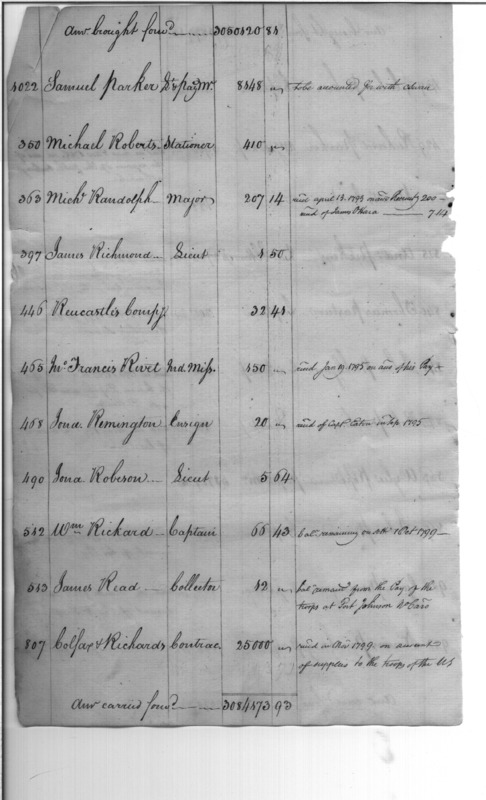 Amt brought forwd 3050420 84
4022 Samuel Parker Dr paymr 8448 " to be accounted for with
350 Michael Roberts Stationer 410 "
363 Michl Randolph Major 207 14 recd april 13. 1793 on acct 200
recd of James OHara 7 14
397 James Richmond Lieut 4 50
446 Rencastles Compy. 32 41
465 Mr Francis Rivet Ind. Miss. 450 " recd Jany 19. 1795 on acct of his Pay
468 Jona. Remington Ensign 20 " recd of Capt. Eaton in Sep 1795
490 Jona Robeson Lieut 5 64
542 Wm Richard Captain 66 43 bal. remaining on 1 Oct 1799
543 James Read Collector 42 " bal remaing from the Pay of the
troops at Fort Johnson No Caro
807 Colfax & Richards Contrac. 25000 " recd in Nov 1799 on account
of supplies to the troops of the US
Amt carried forwd 3084873 93